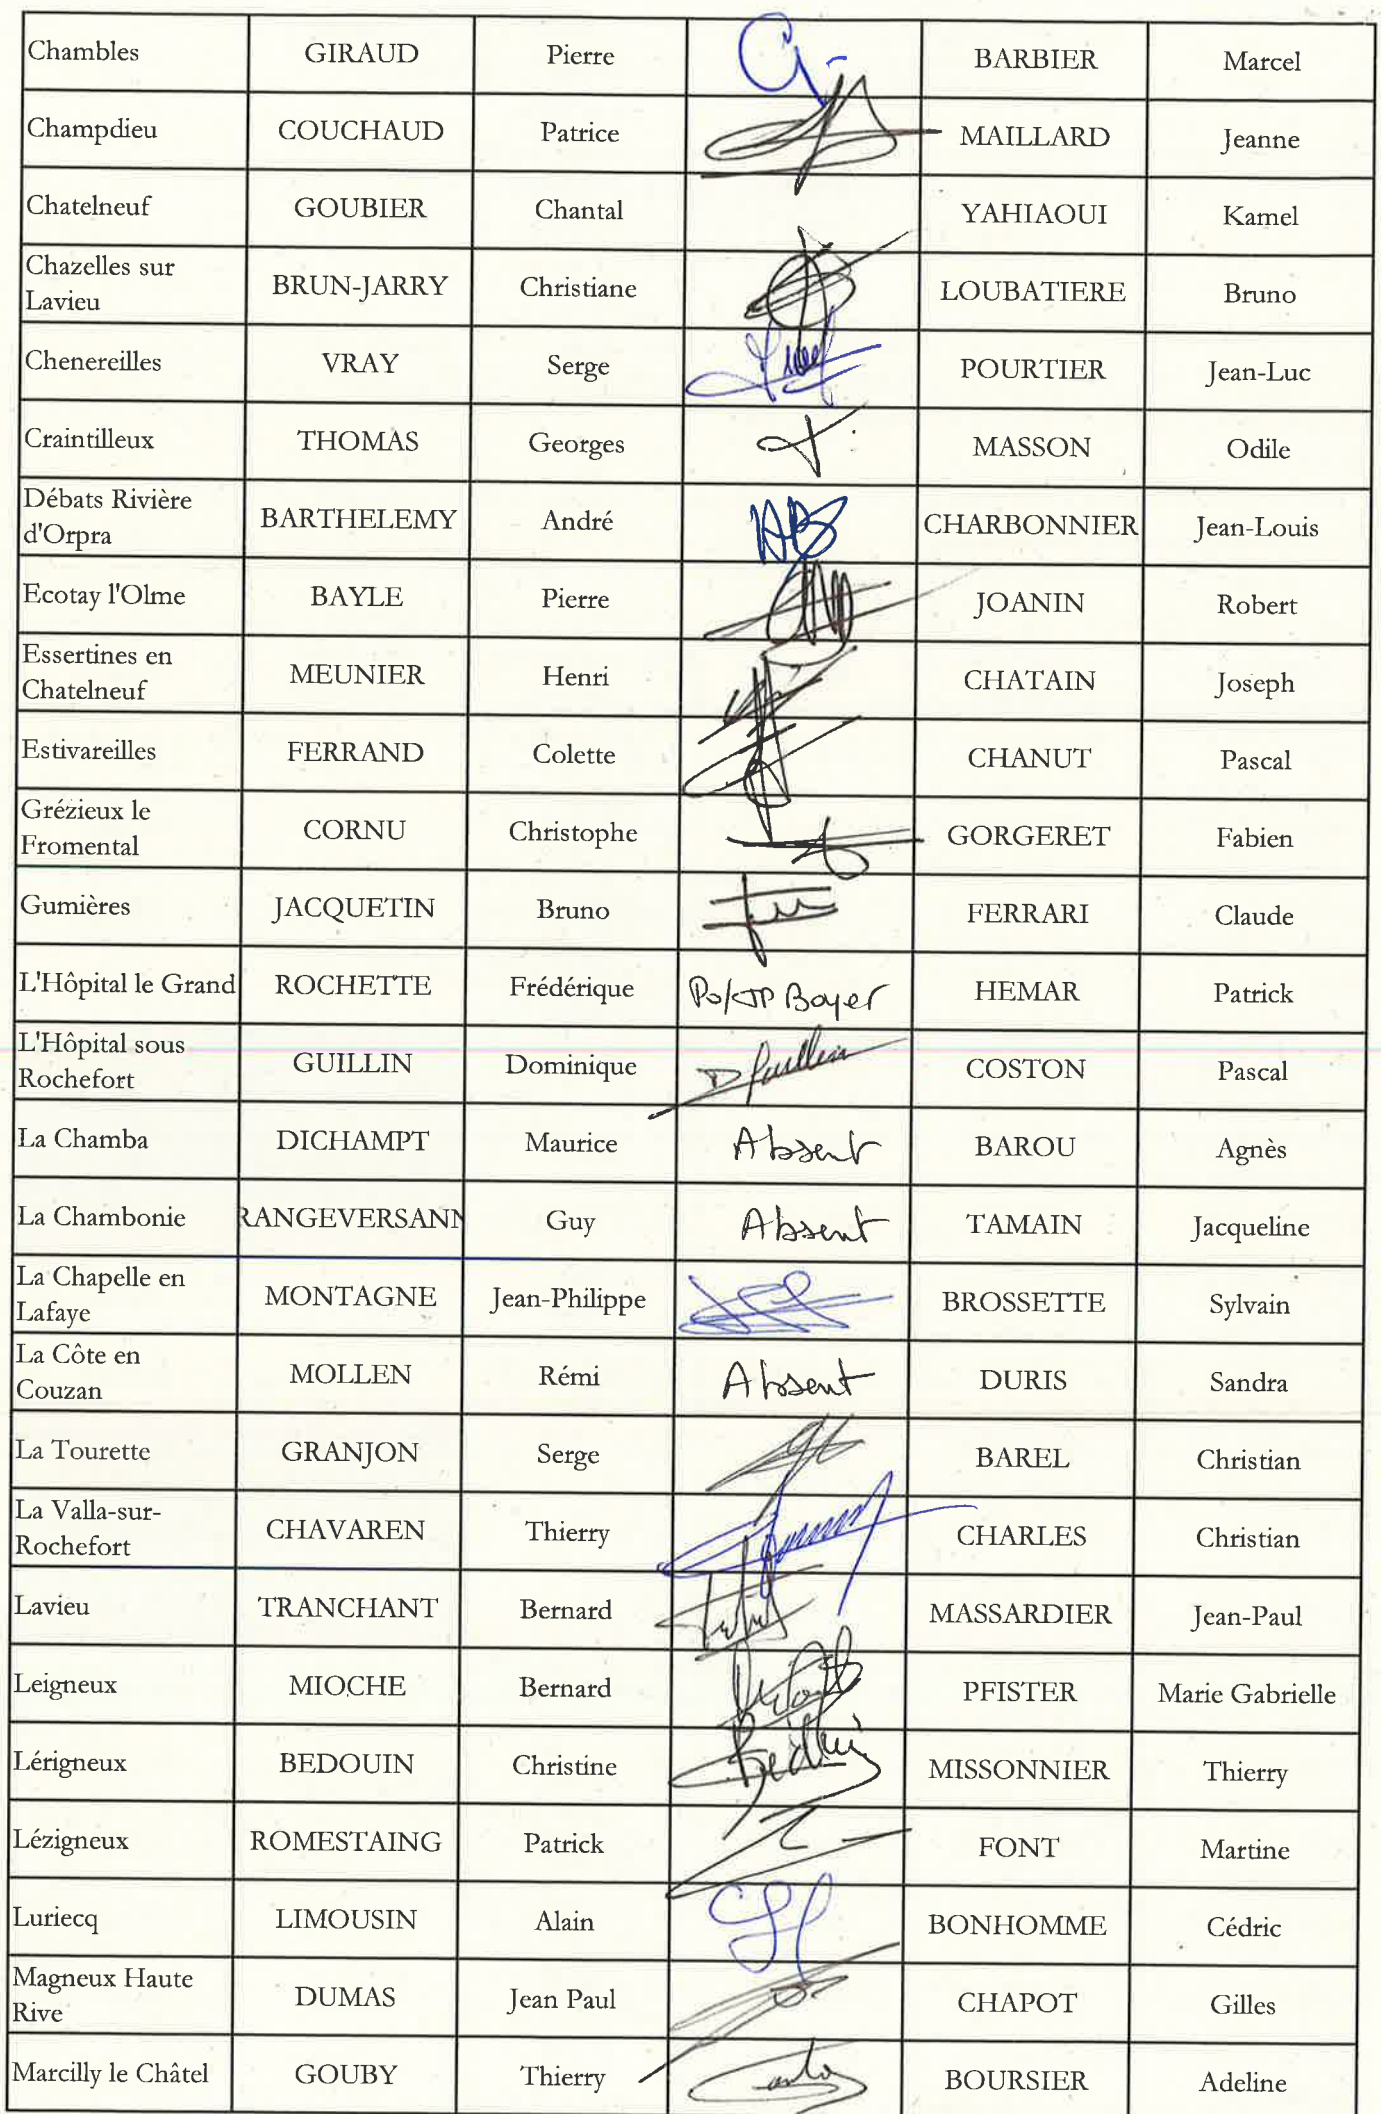 Chambles GIRAUD Pierre BARBIER Marcel
Champdieu COUCHAUD Patrice MAILLARD Jeanne
Chatelneuf GOUBIER Chantal YAHIAOUI Kamel
Chazelles sur
Lavieu BRUN-JARRY Christiane LOUBATIERE Bruno
Chenereilles VRAY Serge POURTIER Jean-Luc
Craintilleux THOMAS Georges MASSON Odile
Débats Rivière
d'Orpra BARTHELEMY André CHARBONNIER Jean-Louis
Ecotay l'Olme BAYLE Pierre JOANIN Robert
Essertines en
Chatelneuf MEUNIER Henri CHATAIN Joseph
Estivareilles FERRAND Colette CHANUT Pascal
Grézieux le
Fromental CORNU Christophe GORGERET Fabien
Gumières JACQUETIN Bruno FERRARI Claude
L'Hôpital le Grand ROCHETTE Frédérique Po/JP Boyer HEMAR Patrick
L'Hôpital sous
Rochefort GUILLIN Dominique D Guillin COSTON Pascal
La Chamba DICHAMPT Maurice Absent BAROU Agnès
La Chambonie RANGEVERSANN Guy Absent TAMAIN Jacqueline
La Chapelle en
Lafaye MONTAGNE Jean-Philippe BROSSETTE Sylvain
La Côte en
Couzan MOLLEN Rémi Absent DURIS Sandra
La Tourette GRANJON Serge BAREL Christian
La Valla-sur-
Rochefort CHAVAREN Thierry CHARLES Christian
Lavieu TRANCHANT Bernard MASSARDIER Jean-Paul
Leigneux MIOCHE Bernard PFISTER Marie Gabrielle
Lérigneux BEDOUIN Christine MISSONNIER Thierry
Lézigneux ROMESTAING Patrick FONT Martine
Luriecq LIMOUSIN Alain BONHOMME Cédric
Magneux Haute
Rive DUMAS Jean Paul CHAPOT Gilles
Marcilly le Châtel GOUBY Thierry BOURSIER Adeline